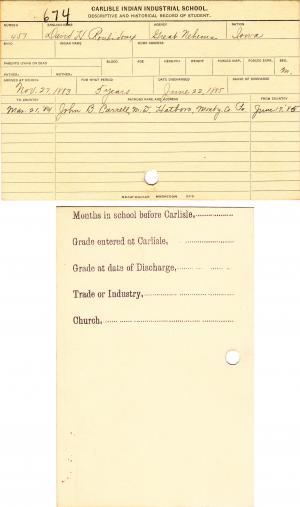 674
CARLISLE INDIAN INDUSTRIAL SCHOOL.
DESCRIPTIVE AND HISTORICAL RECORD OF STUDENT.
NUMBER ENGLISH NAME AGENCY NATION
457 David H Roubidoux Great Nehema Iowa
BAND INDIAN NAME HOME ADDRESS
PARENTS LIVING OR DEAD BLOOD AGE HEIGHT WEIGHT FORCED INSP. FORCED EXPR. SEX
FATHER: MOTHER: M.
ARRIVED AT SCHOOL FOR WHAT PERIOD DATE DISCHARGED CAUSE OF DISCHARGE
Nov. 27, 1883 5 years June 22, 1885
TO COUNTRY PATRONS NAME AND ADDRESS FROM COUNTRY
Mar. 21, '84 John B. Carrell, M.D. Hatboro, Co. Pa. June 17, '85
Months in school before Carlisle,
Grade entered at Carlisle,
Grade at date of Discharge,
Trade or Industry,
Church,